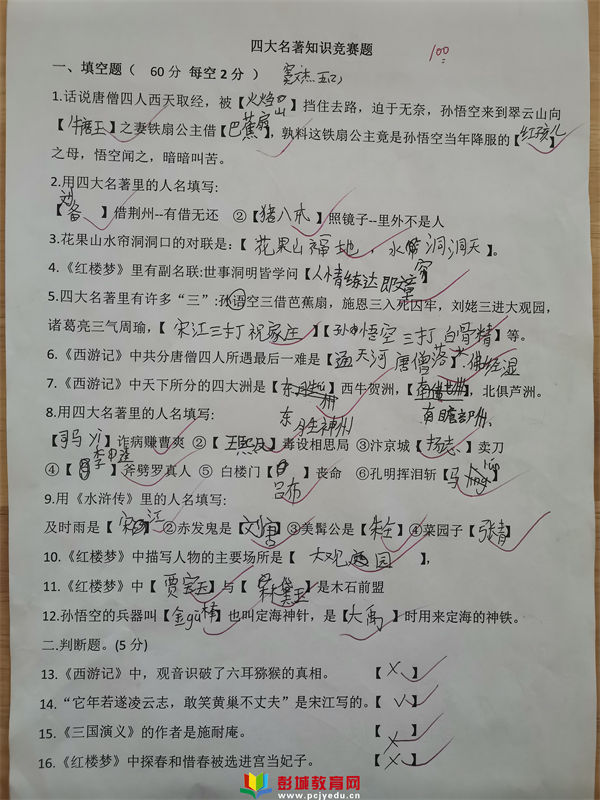 四大名著知识竞赛题 100
一、填空题（ 60分 每空2分 ）
1.话说唐僧四人西天取经，被【火焰山】挡住去路，迫于无奈，孙悟空来到翠云山向
【牛魔王】之妻铁扇公主借【芭蕉扇】,孰料这铁扇公主竟是孙悟空当年降服的【红孩儿】
之母，悟空闻之，暗暗叫苦。
2.用四大名著里的人名填写:
【刘备】借荆州--有借无还 ②【猪八戒】照镜子--里外不是人
3.花果山水帘洞洞口的对联是:【花果山福地，水帘洞洞天】。
4.《红楼梦》里有副名联:世事洞明皆学问【人情练达即文章】
5.四大名著里有许多“三”:孙语空三借芭蕉扇，施恩三入死囚牢，刘姥三进大观园，
诸葛亮三气周瑜,【宋江三打祝家庄】【孙悟空三打白骨精】等。
6.《西游记》中共分唐僧四人所遇最后一难是【通天河唐僧落水佛经湿】
7.《西游记》中天下所分的四大洲是【东胜神洲】西牛贺洲,【南瞻部洲】,北俱芦洲。
8.用四大名著里的人名填写:
【司马懿】诈病赚曹爽 ②【王熙凤】毒设相思局 ③汴京城【杨志】卖刀
④【李逵】斧劈罗真人 ⑤ 白楼门【吕布】丧命 ⑥孔明挥泪斩【马谡】
9.用《水浒传》里的人名填写:
及时雨是【宋江】②赤发鬼是【刘唐】③美髯公是【朱仝】④菜园子【张青】
10.《红楼梦》中描写人物的主要场所是【 大观园 】,
11.《红楼梦》中【贾宝玉】与【林黛玉】是木石前盟
12.孙悟空的兵器叫【金gū棒】也叫定海神针，是【大禹】时用来定海的神铁。
二.判断题。(5分)
13.《西游记》中，观音识破了六耳猕猴的真相。 【×】
14.“它年若遂凌云志，敢笑黄巢不丈夫”是宋江写的。 【√】
15.《三国演义》的作者是施耐庵。 【×】
16.《红楼梦》中探春和惜春被选进宫当妃子。 【×】
彭城教育网
www.pcjyedu.cn